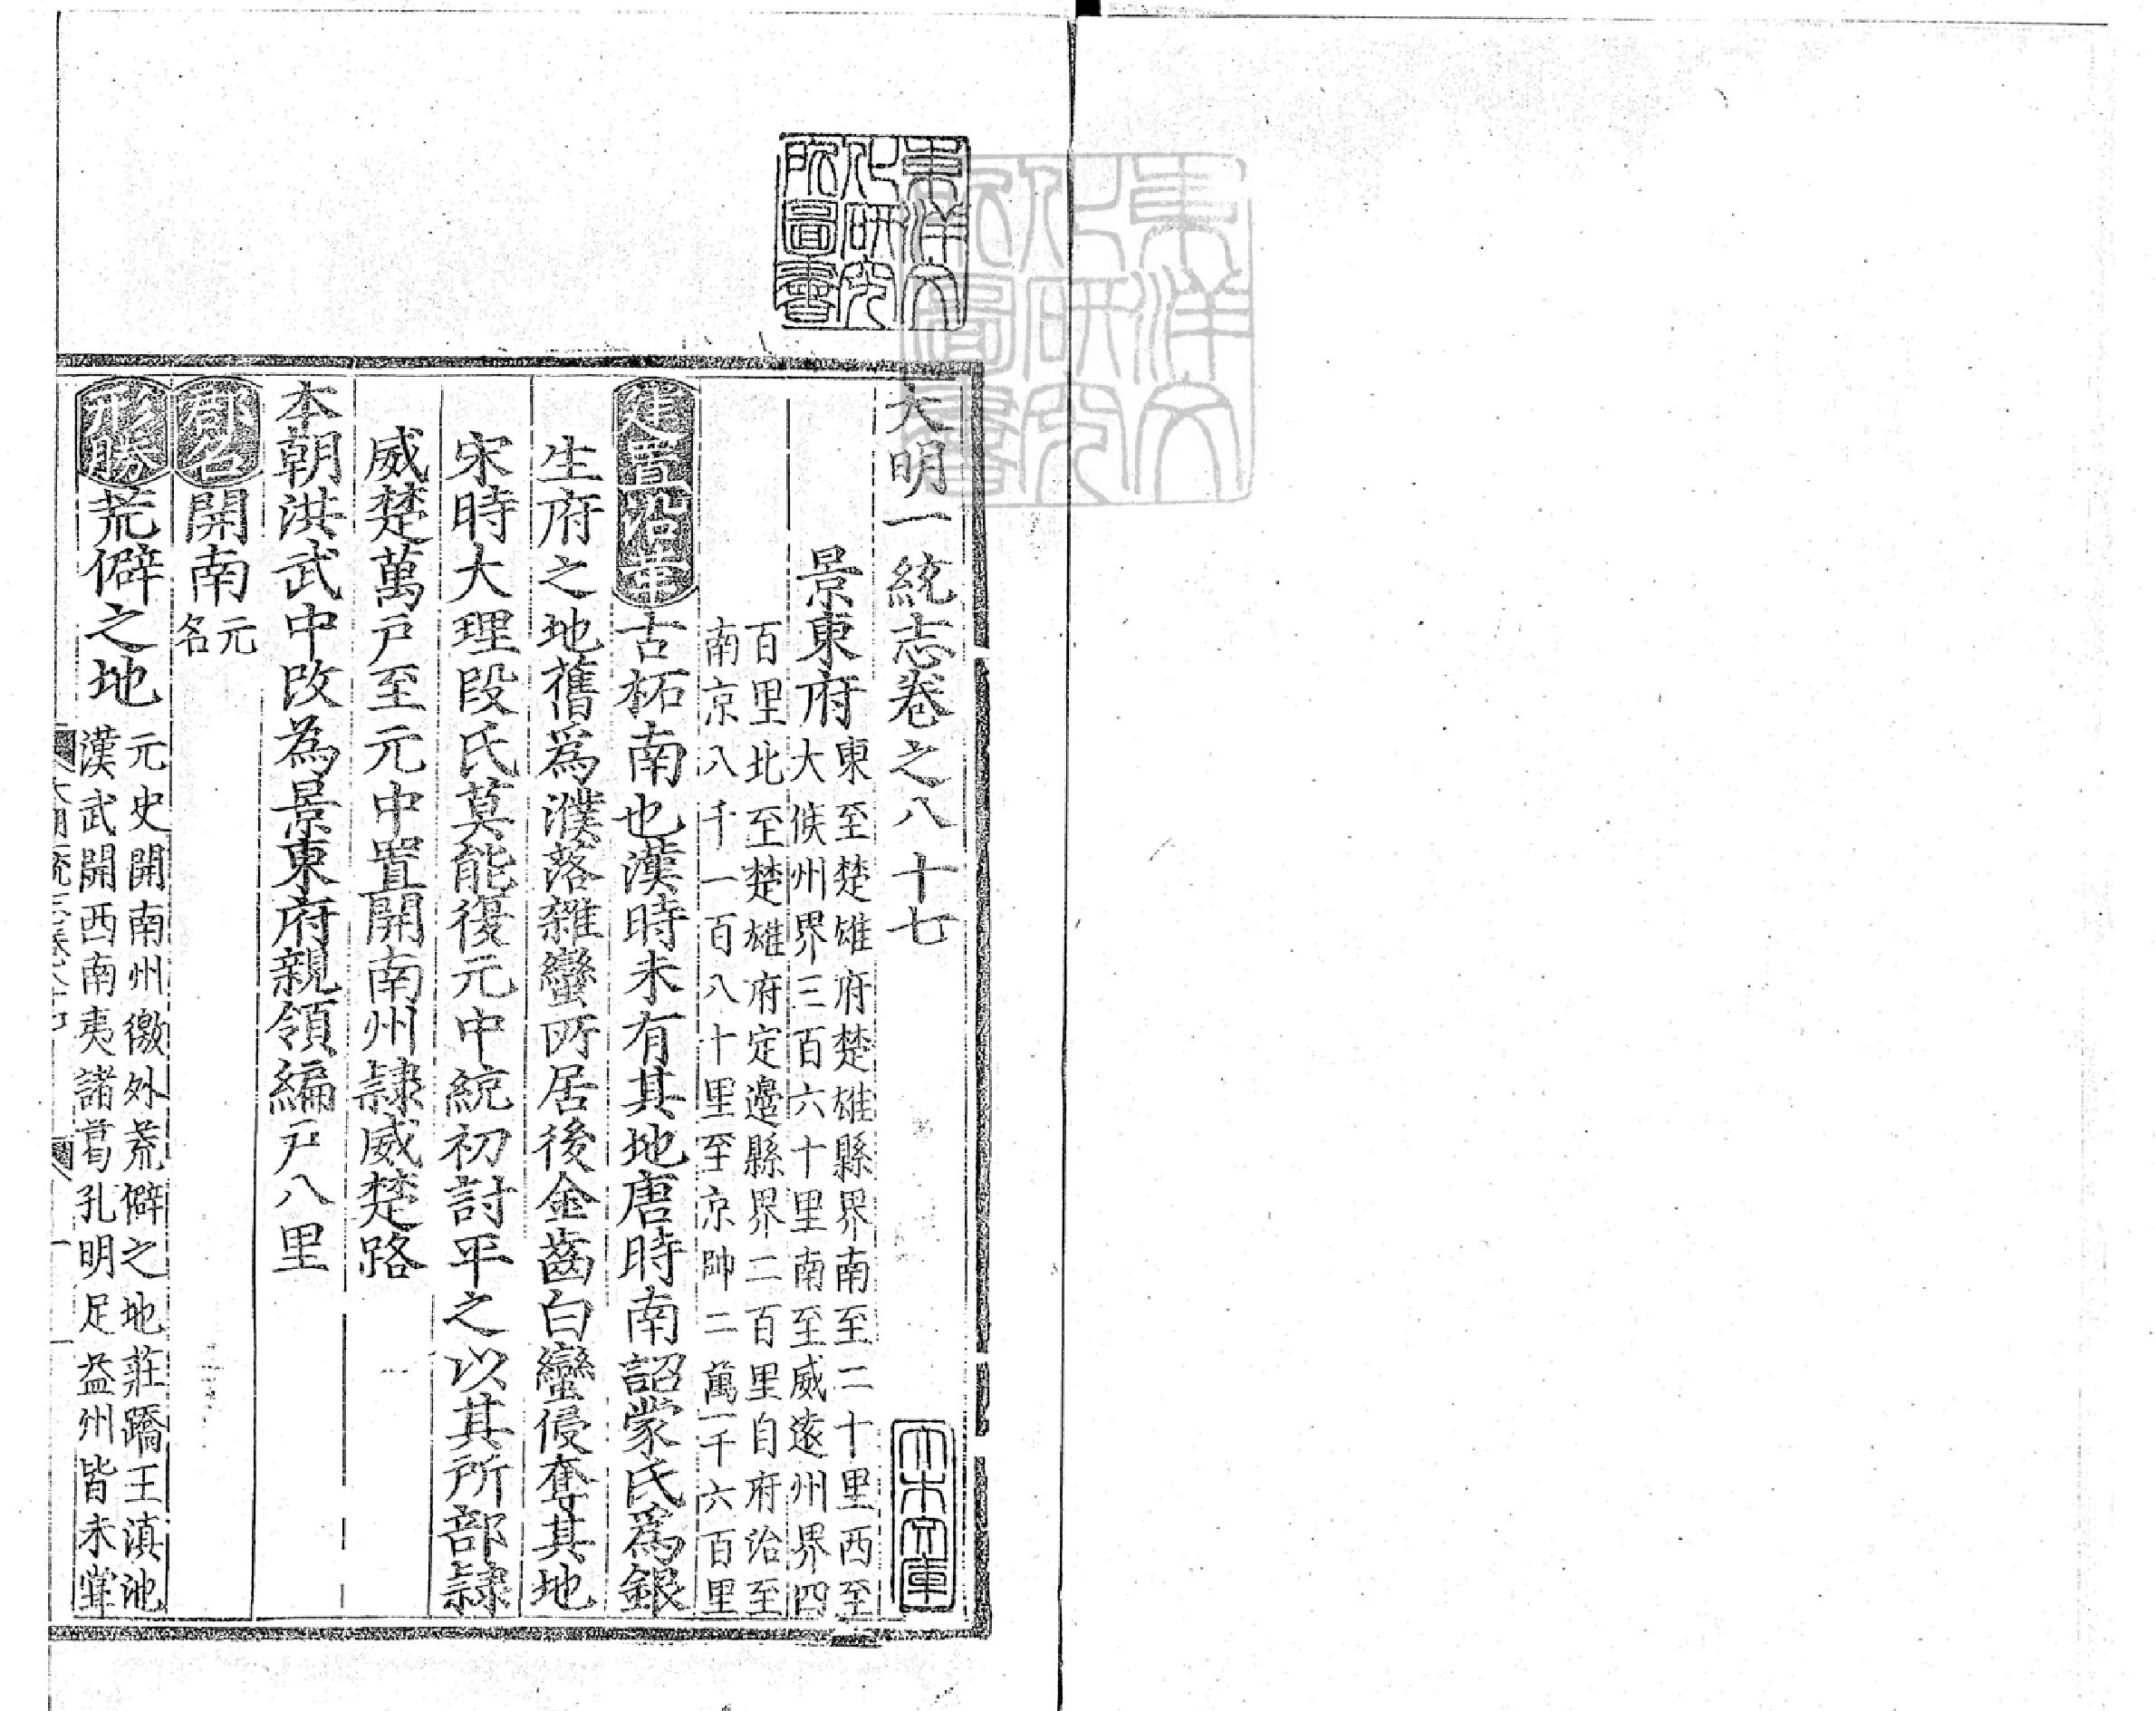 大明一統志卷之八十七
景東府東至楚雄府楚雄縣界南至二十里西至
大侯州界三百六十里南至威遠州界四
百里北至楚雄府定邊縣界二百里自府治至
南京八千一百八十里至京師二萬一千六百里
建置沿革古柘南也漢時未有其地唐時南詔蒙氏爲銀
生府之地舊爲濮落雜蠻所居後金齒白蠻侵奪其地
宋時大理段氏莫能復元中統初討平之以其所部隸
威楚萬戸至元中置開南州隸威楚路
本朝洪武中改為景東府親領編戸八里
郡名開南元
名
形勝荒僻之地元史開南州徼外荒僻之地莊蹻王滇池
漢武開西南夷諸葛孔明足益州皆未甞
東洋文化研究所圖書
大木文庫